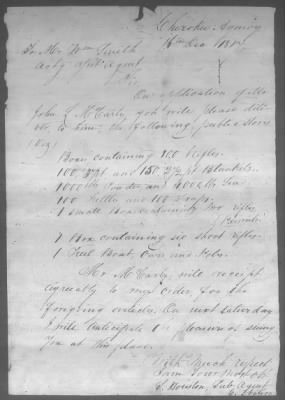 Cherokee Agency
16th Dec 18
To Mr Wm Smith
Actg Asst Agent
Sir
On application of Mr
John L McCarty, you will please deli-
ver to him, the following, public Stores
(Viz)
Boxes containing 100 Rifles.
100 3 pt and 150 2½ pt Blankets.
1000 lbs Powder, and 4000 lbs Lead
100 Kettles and 100 Traps.
1 small Box containing
1 Box containing six short rifles.
1 Keel Boat, Oars and Poles.
Mr McCarty, will receipt
agreeably to my order, for the
forgoing articles. On next Saturday
I will anticipate the pleasure of seeing
you at this place.
With Much respect
Your
S. Houston, Sub Agent